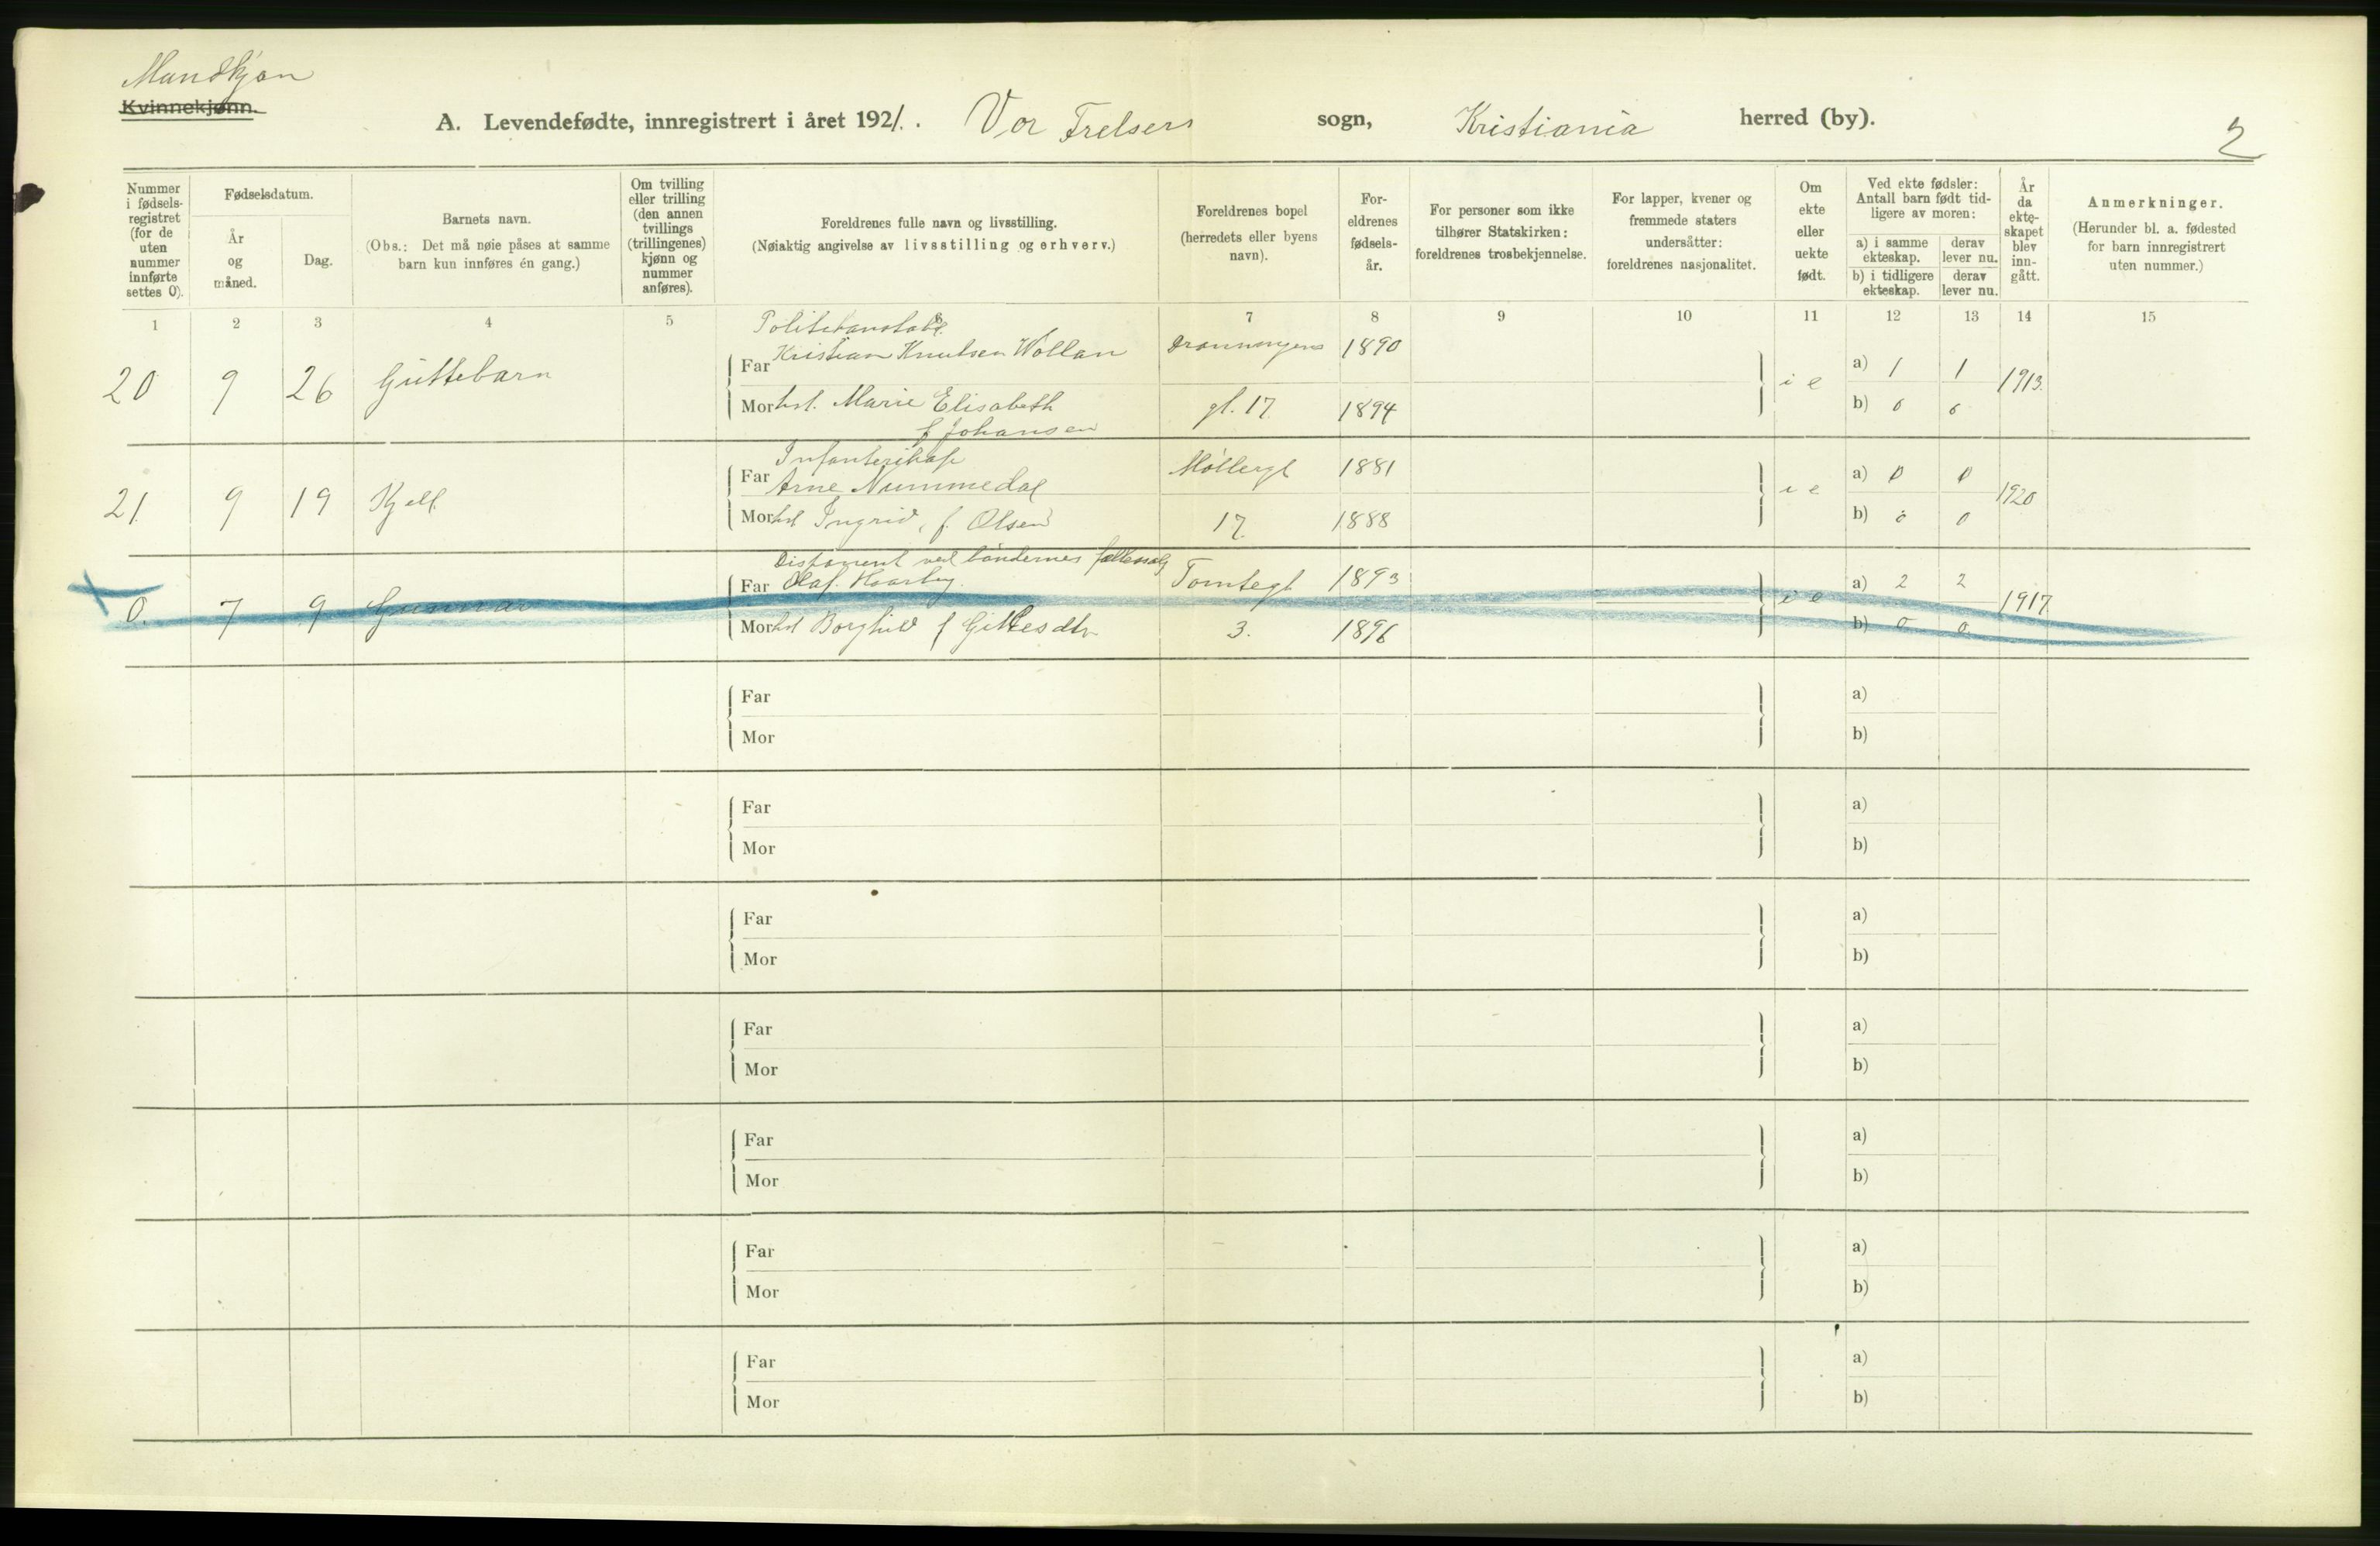 Mandkjøn
Kvinnekjønn.
A. Levendefødte, innregistrert i året 1921. Vor Frelsers sogn, Kristiania herred (by).
2
Nummer i fødsels-registret (for de uten nummer innførte settes 0).
Fødselsdatum.
År og måned.
Dag.
Barnets navn.
(Obs.: Det må nøie påses at samme barn kun innføres én gang.)
Om tvilling eller trilling (den annen tvillings (trillingenes) kjønn og nummer anføres).
Foreldrenes fulle navn og livsstilling.
(Nøiaktig angivelse av livsstilling og erhverv.)
Foreldrenes bopel (herredets eller byens navn).
For-eldrenes fødsels-år.
For personer som ikke tilhører Statskirken: foreldrenes trosbekjennelse.
For lapper, kvener og fremmede staters undersåtter: foreldrenes nasjonalitet.
Om ekte eller uekte født.
Ved ekte fødsler: Antall barn født tid-ligere av moren:
a) i samme ekteskap.
derav lever nu.
b) i tidligere ekteskap.
derav lever nu.
År da ekte-skapet blev inn-gått.
Anmerkninger.
(Herunder bl. a. fødested for barn innregistrert uten nummer.)
1 2 3 4 5 6 7 8 9 10 11 12 13 14 15
Politikonstabel
20 9 26 Guttebarn Far Kristian Knutsen Wollan Dronningens 1890 i e a) 1 1 1913.
Mor hst. Marie Elisabeth gt. 17. 1894 b) 0 0
f Johansen
Infanterikapt
21. 9 19 Kjell. Far Arne Nummedal Møllergt 1881 i e a) 0 0 1920
Mor hst Ingrid, f. Olsen 17. 1888 b) 0 0
Disponent ved bøndernes fællessalg
0. 7 9 Gunnar Far Olaf. Haarby. Tomtegt 1893 i e a) 2 2 1917.
Mor hst Borghild f Gittesdtr 3. 1896 b) 0 0.
Far a)
Mor b)
Far a)
Mor b)
Far a)
Mor b)
Far a)
Mor b)
Far a)
Mor b)
Far a)
Mor b)
Far a)
Mor b)